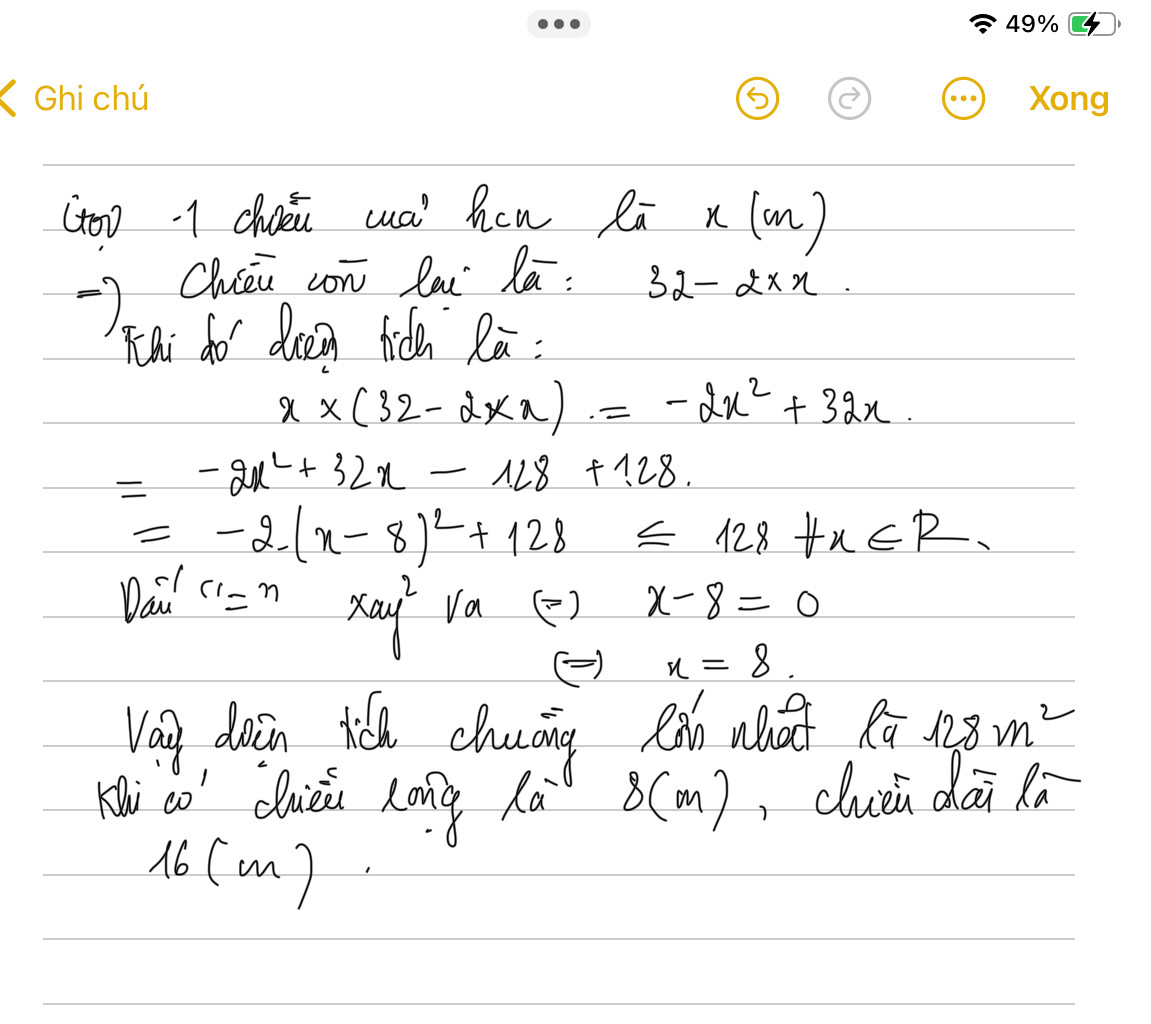 49%
Ghi chú
Xong
Gọi 1 chiều của hcn là x (m)
=) Chiều còn lại là: 32 - 2 × x.
Khi đó diện tích là:
x × (32 - 2 × x) = -2x² + 32x.
= -2x² + 32x - 128 + 128.
= -2.(x - 8)² + 128 ≤ 128 ∀x ∈ R.
Dấu "=" xảy ra (=) x - 8 = 0
(=) x = 8.
Vậy diện tích chuồng lớn nhất là 128 m²
khi có chiều rộng là 8 (m), chiều dài là
16 (m).